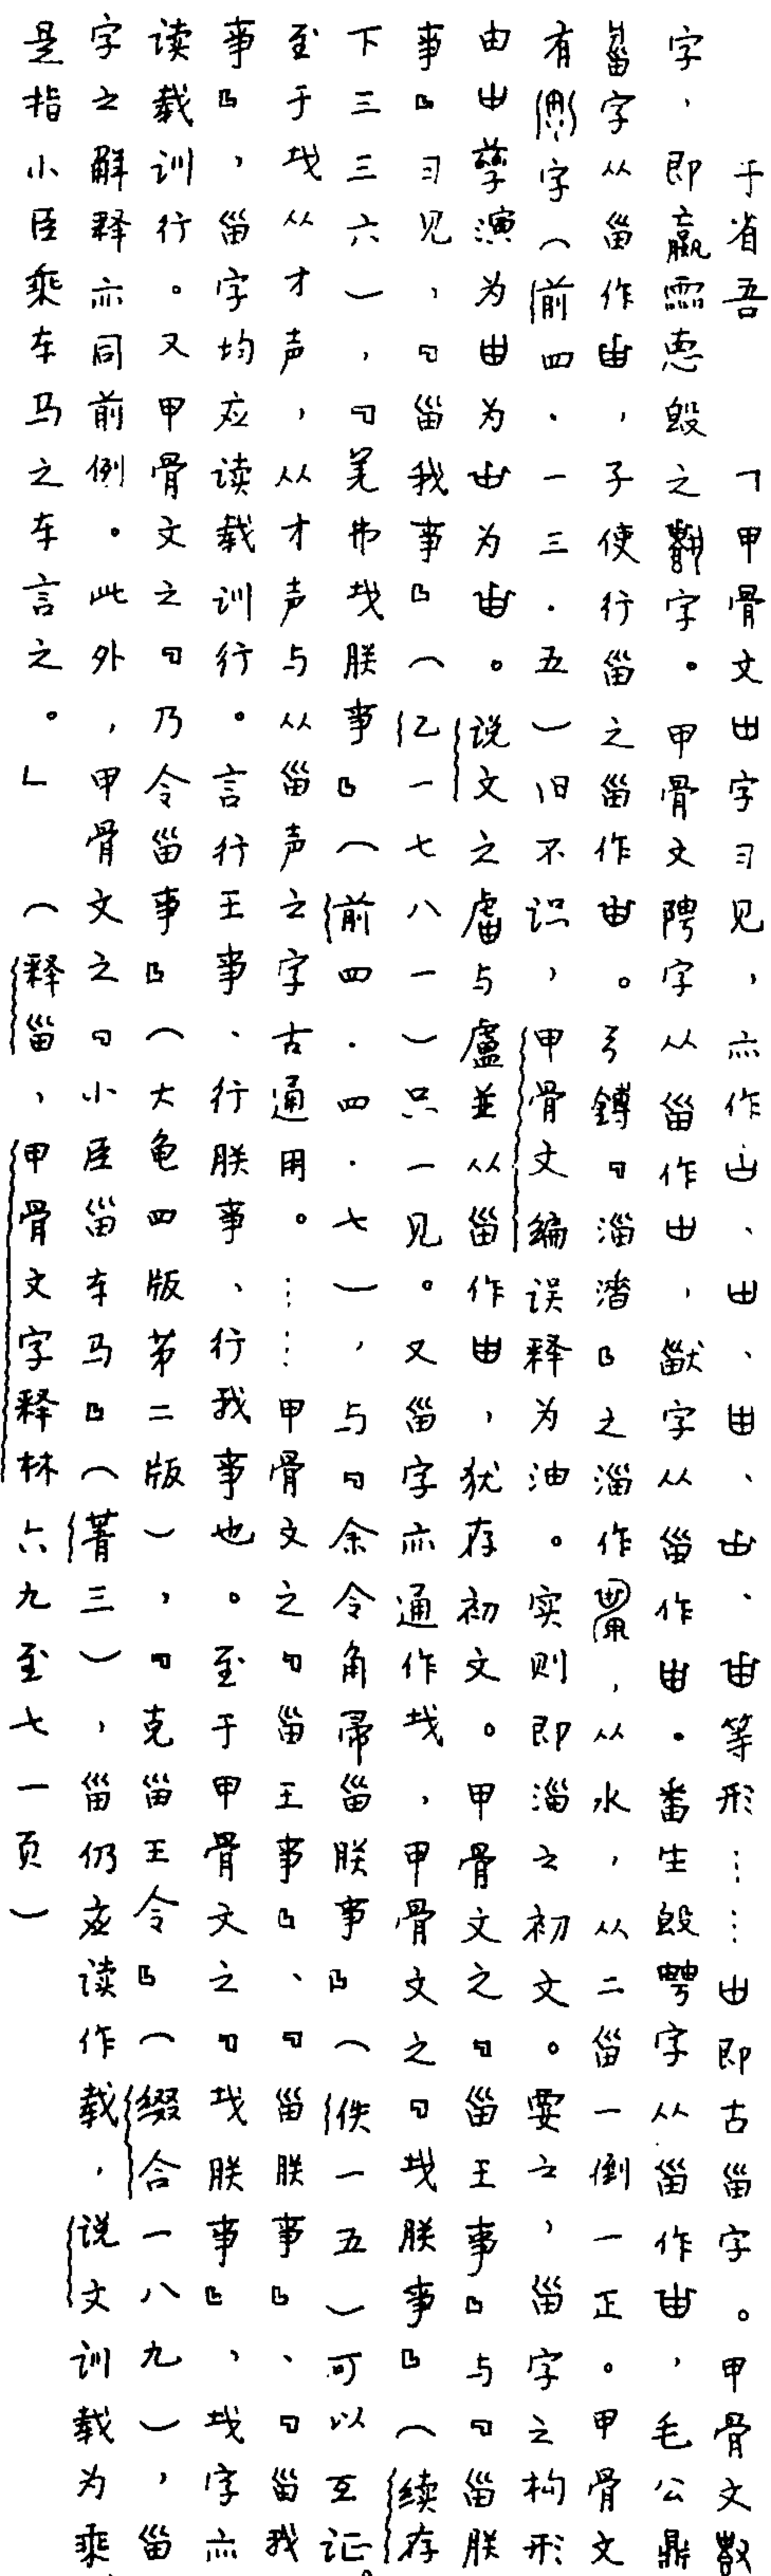 于省吾 「甲骨文由字习见，亦作甴、由、甶、凷、甾等形……由即古甾字。甲骨文
字，即嬴霝惪毁之字。甲骨文聘字从甾作由，猷字从甾作甾。番生毁甹字从甾作甾，毛公鼎
字从甾作甾，子使行甾之甾作甾。弓鎛『淄潪』之淄作，从水，从二甾一倒一正。甲骨文
有字（前四·一三·五）旧不识，甲骨文编误释为油。实则即淄之初文。要之，甾字之构形
由由孳演为甾为甾为甾。说文之䖒与盧並从甾作甾，犹存初文。甲骨文之『甾王事』与『甾朕
事』习见，『甾我事』（乙一七八一）只一见。又甾字亦通作𢦏，甲骨文之『𢦏朕事』（续存
下三三六），『羌弗𢦏朕事』（前四·四·七），与『余令角帚甾朕事』（佚一五）可以互证。
至于𢦏从才声，从才声与从甾声之字古通用。……甲骨文之『甾王事』、『甾朕事』、『甾我
事』，甾字均应读载训行。言行王事、行朕事、行我事也。至于甲骨文之『𢦏朕事』，𢦏字亦
读载训行。又甲骨文之『乃令甾事』（大龟四版第二版），『克甾王令』（缀合一八九），甾
字之解释亦同前例。此外，甲骨文之『小臣甾车马』（菁三），甾仍应读作载，说文训载为乘，
是指小臣乘车马之车言之。」（释甾，甲骨文字释林六九至七一页）